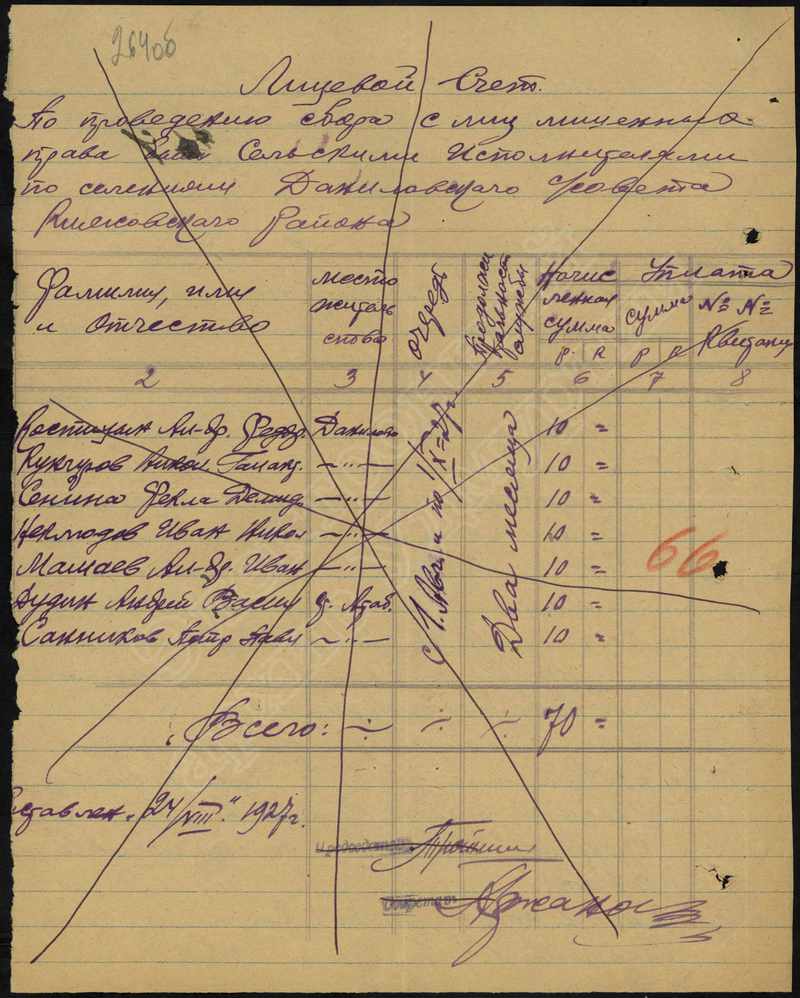 26406
Лицевой Счет.
По проведению сбора с лиц лишенных
права быть Сельскими Исполнителями
по селениям Даниловского Совета
Княжовского Района
Фамилия, имя и Отчество | место житель ство | очередь | Продолжи тельность службы | Начис ленная сумма р. к. | Уплата сумма р к | №№ Квитанц
2 3 4 5 6 7 8
Костицин Ал-др. Федор. Данилово 10 =
Кункуров Никол 10 =
Сенина Фекла Демид —"— 10 =
Иван Никол —"— 10 =
Мамаев Ал-др. Иван —"— 10 =
Дудин Андрей Васил д. Араб. 10 =
Санников Петр Павл —"— 10 =
с 1. Авг. и по 1/X=27г
Два месяца
66
Всего: ÷ ÷ ÷ 70 =
ставлен "24/VIII" 1927г.
Председатель
Секретарь